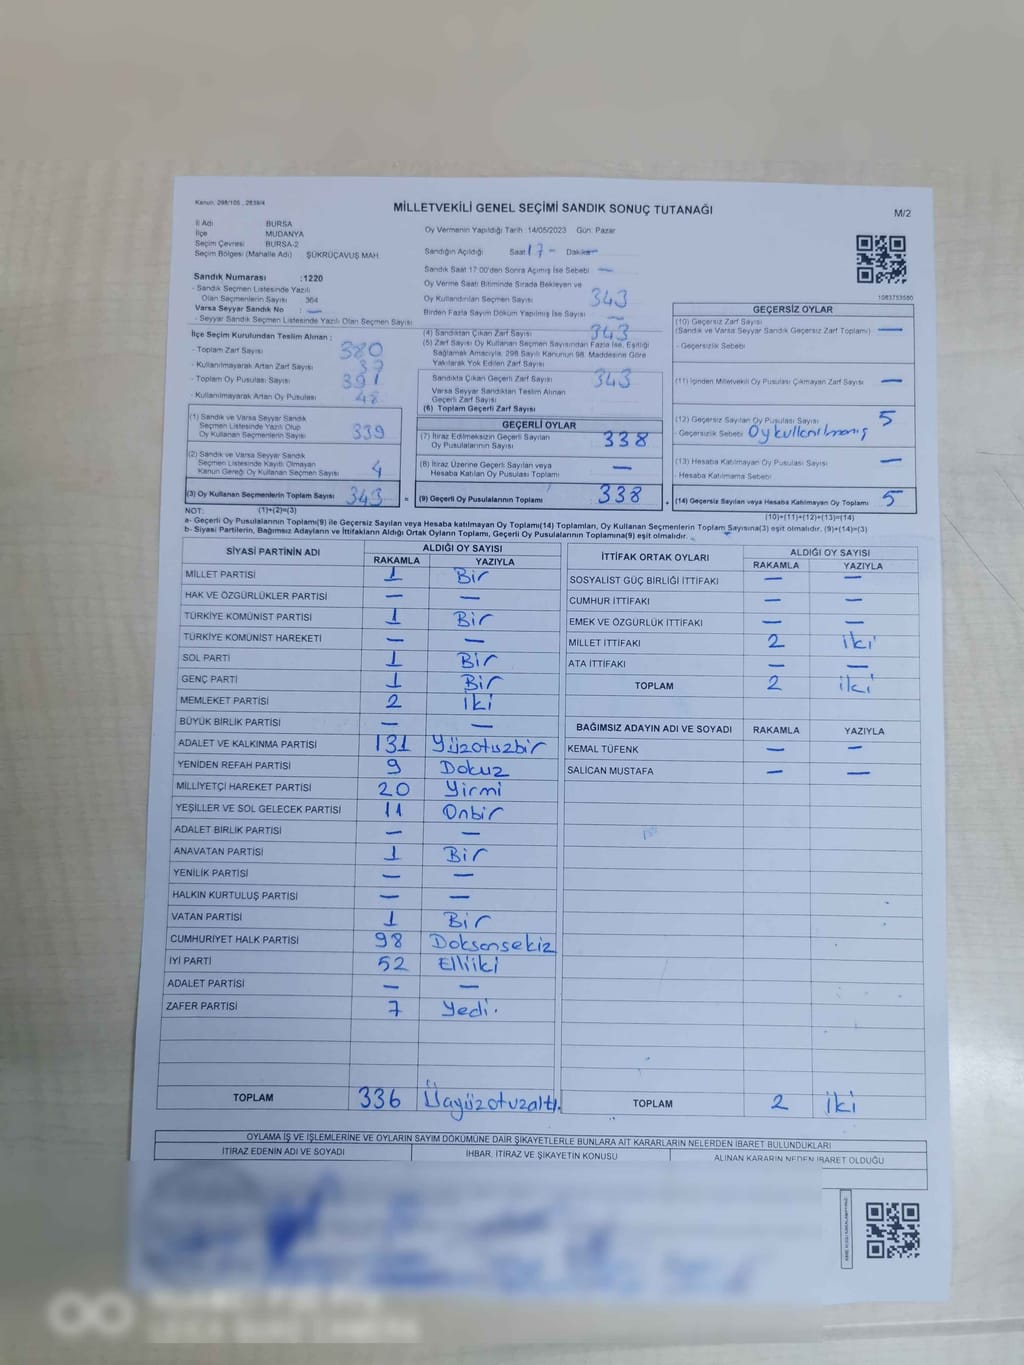 Kanun: 298/105 , 2839/4
MİLLETVEKİLİ GENEL SEÇİMİ SANDIK SONUÇ TUTANAĞI
M/2
İl Adı BURSA
İlçe MUDANYA
Seçim Çevresi BURSA-2
Seçim Bölgesi (Mahalle Adı) ŞÜKRÜÇAVUŞ MAH
Oy Vermenin Yapıldığı Tarih 14/05/2023 Gün: Pazar
Sandığın Açıldığı Saat 17 - Dakika —
Sandık Saat 17:00'den Sonra Açılmış İse Sebebi —
Oy Verme Saati Bitiminde Sırada Bekleyen ve
Oy Kullandırılan Seçmen Sayısı 343
Birden Fazla Sayım Döküm Yapılmış İse Sayısı —
Sandık Numarası :1220
- Sandık Seçmen Listesinde Yazılı
Olan Seçmenlerin Sayısı 364
Varsa Seyyar Sandık No : —
- Seyyar Sandık Seçmen Listesinde Yazılı Olan Seçmen Sayısı
İlçe Seçim Kurulundan Teslim Alınan :
- Toplam Zarf Sayısı 380
- Kullanılmayarak Artan Zarf Sayısı 37
- Toplam Oy Pusulası Sayısı 391
- Kullanılmayarak Artan Oy Pusulası 48
(1) Sandık ve Varsa Seyyar Sandık
Seçmen Listesinde Yazılı Olup
Oy Kullanan Seçmenlerin Sayısı 339
(2) Sandık ve Varsa Seyyar Sandık
Seçmen Listesinde Kayıtlı Olmayan
Kanun Gereği Oy Kullanan Seçmen Sayısı 4
(3) Oy Kullanan Seçmenlerin Toplam Sayısı 343 =
(4) Sandıktan Çıkan Zarf Sayısı 343
(5) Zarf Sayısı Oy Kullanan Seçmen Sayısından Fazla İse, Eşitliği
Sağlamak Amacıyla, 298 Sayılı Kanunun 98. Maddesine Göre
Yakılarak Yok Edilen Zarf Sayısı
Sandıkta Çıkan Geçerli Zarf Sayısı 343
Varsa Seyyar Sandıktan Teslim Alınan
Geçerli Zarf Sayısı
(6) Toplam Geçerli Zarf Sayısı
GEÇERLİ OYLAR
(7) İtiraz Edilmeksizin Geçerli Sayılan
Oy Pusulalarının Sayısı 338
(8) İtiraz Üzerine Geçerli Sayılan veya
Hesaba Katılan Oy Pusulası Toplamı —
(9) Geçerli Oy Pusulalarının Toplamı 338 +
1083753580
GEÇERSİZ OYLAR
(10) Geçersiz Zarf Sayısı
(Sandık ve Varsa Seyyar Sandık Geçersiz Zarf Toplamı) —
- Geçersizlik Sebebi
(11) İçinden Milletvekili Oy Pusulası Çıkmayan Zarf Sayısı —
(12) Geçersiz Sayılan Oy Pusulası Sayısı 5
- Geçersizlik Sebebi Oy kullanılmamış
(13) Hesaba Katılmayan Oy Pusulası Sayısı —
- Hesaba Katılmama Sebebi
(14) Geçersiz Sayılan veya Hesaba Katılmayan Oy Toplamı 5
NOT: (1)+(2)=(3)
(10)+(11)+(12)+(13)=(14)
a- Geçerli Oy Pusulalarının Toplamı(9) ile Geçersiz Sayılan veya Hesaba katılmayan Oy Toplamı(14) Toplamları, Oy Kullanan Seçmenlerin Toplam Sayısına(3) eşit olmalıdır. (9)+(14)=(3)
b- Siyasi Partilerin, Bağımsız Adayların ve İttifakların Aldığı Ortak Oyların Toplamı, Geçerli Oy Pusulalarının Toplamına(9) eşit olmalıdır.
SİYASİ PARTİNİN ADI ALDIĞI OY SAYISI
RAKAMLA YAZIYLA
MİLLET PARTİSİ 1 Bir
HAK VE ÖZGÜRLÜKLER PARTİSİ — —
TÜRKİYE KOMÜNİST PARTİSİ 1 Bir
TÜRKİYE KOMÜNİST HAREKETİ — —
SOL PARTİ 1 Bir
GENÇ PARTİ 1 Bir
MEMLEKET PARTİSİ 2 iki
BÜYÜK BİRLİK PARTİSİ — —
ADALET VE KALKINMA PARTİSİ 131 Yüzotuzbir
YENİDEN REFAH PARTİSİ 9 Dokuz
MİLLİYETÇİ HAREKET PARTİSİ 20 Yirmi
YEŞİLLER VE SOL GELECEK PARTİSİ 11 Onbir
ADALET BİRLİK PARTİSİ — —
ANAVATAN PARTİSİ 1 Bir
YENİLİK PARTİSİ — —
HALKIN KURTULUŞ PARTİSİ — —
VATAN PARTİSİ 1 Bir
CUMHURİYET HALK PARTİSİ 98 Doksansekiz
İYİ PARTİ 52 Elliiki
ADALET PARTİSİ — —
ZAFER PARTİSİ 7 Yedi.
TOPLAM 336 Üçyüzotuzaltı.
İTTİFAK ORTAK OYLARI ALDIĞI OY SAYISI
RAKAMLA YAZIYLA
SOSYALİST GÜÇ BİRLİĞİ İTTİFAKI — —
CUMHUR İTTİFAKI — —
EMEK VE ÖZGÜRLÜK İTTİFAKI — —
MİLLET İTTİFAKI 2 iki
ATA İTTİFAKI — —
TOPLAM 2 iki
BAĞIMSIZ ADAYIN ADI VE SOYADI RAKAMLA YAZIYLA
KEMAL TÜFENK — —
SALİCAN MUSTAFA — —
TOPLAM 2 iki
OYLAMA İŞ VE İŞLEMLERİNE VE OYLARIN SAYIM DÖKÜMÜNE DAİR ŞİKAYETLERLE BUNLARA AİT KARARLARIN NELERDEN İBARET BULUNDUKLARI
İTİRAZ EDENİN ADI VE SOYADI İHBAR, İTİRAZ VE ŞİKAYETİN KONUSU ALINAN KARARIN NEDEN İBARET OLDUĞU